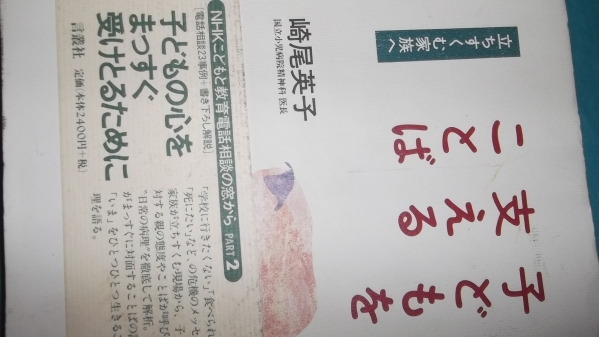 立ちすくむ家族へ
子どもを
支える
ことば
崎尾英子
国立小児病院精神科医長
NHKこどもと教育電話相談の窓から PART 2
[電話相談23事例+書き下ろし解説]
子どもの心を
まっすぐ
受けとるために
言叢社 定価(本体2400円+税)
「学校に行きたくない」「食べられ
「死にたい」など、の危機のメッセ
家族が立ちすくむ現場から、子
対する親の態度やことばが呼び
“日常の病理”を徹底して解析。
がまっすぐに対面することばの
「いま」をひとつひとつ生きるこ
理を語る。